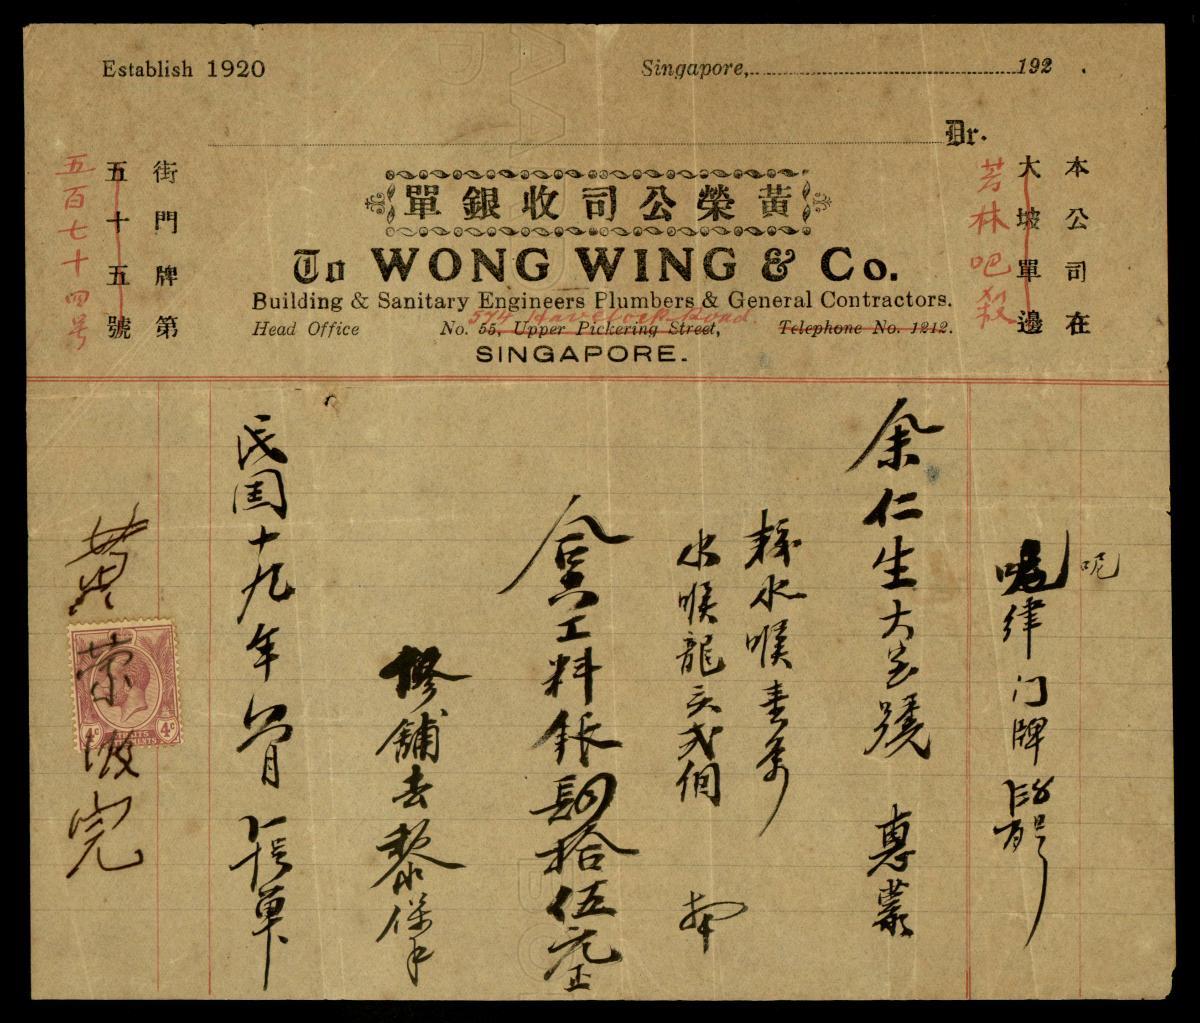 Establish 1920
Singapore, 192 .
Dr.
本公司在
大坡單邊
芳林吧殺
黃榮公司收銀單
街門牌第
五十五號
五百七十四号
To WONG WING & Co.
Building & Sanitary Engineers Plumbers & General Contractors.
574, Havelock Road.
Head Office No. 55, Upper Pickering Street, Telephone No. 1212.
SINGAPORE.
呢
律门牌
余仁生大宝號 惠蒙
水喉
水喉龍头弍個
工料銀四拾伍元正
修舖去黎保
民囯十九年 月 单
黄荣收完
4c 4c